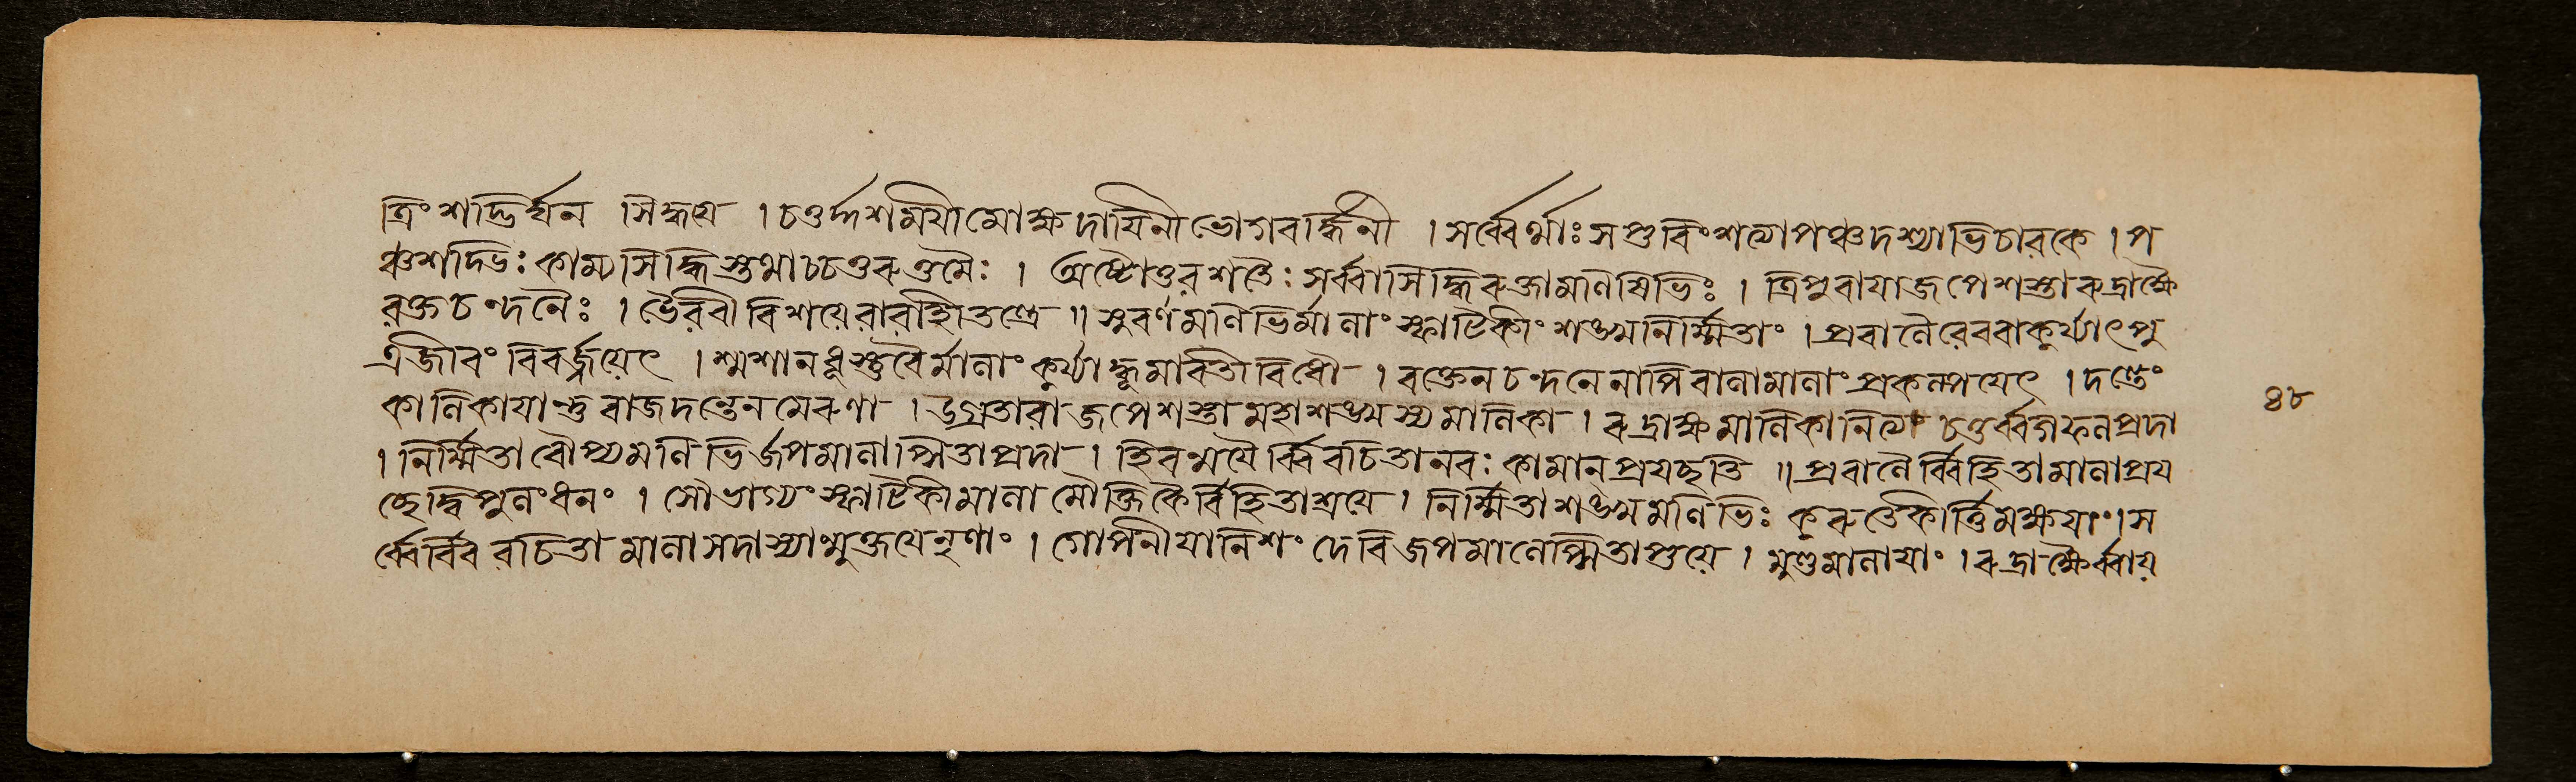 ত্রিংশদ্ভির্ধন সিদ্ধয়ে । চতুর্দ্দশময়ী মোক্ষদায়িনী ভোগবর্দ্ধিনী । সর্ব্বের্থাঃ সপ্তবিংশত্যা পঞ্চদশ্যাভিচারকে । প
ঞ্চশদ্ভিঃ কাম্যসিদ্ধিস্তথাচ চতুরুত্তমৈঃ । অষ্টোত্তরশতৈঃ সর্ব্বাসিদ্ধিরুক্তামনীষিভিঃ । ত্রিপুরাযাজপেশস্তারুদ্রাক্ষৈ
রক্তচন্দনৈঃ । ভৈরবী বিশয়ে বারাহীতন্ত্রে ॥ সুবর্ণমণিভির্মালাং স্ফাটিকীং শঙ্খনির্ম্মিতাং । প্রবালৈরেববাকুর্য্যাৎ পু
ত্রজীবং বিবর্জ্জয়েৎ । শ্মশানধূস্তুরৈর্মালাং কুর্য্যাদ্ধূমাবতীবিধৌ । রক্তেনচন্দনেনাপিবালামালাং প্রকল্পয়েৎ । দন্তেং
কালিকাযাস্তুরাজদন্তেনমেরুণা । উগ্রতারাজপেশস্তামহাশঙ্খস্যমালিকা । রুদ্রাক্ষমালিকানিত্যা চতুর্ব্বর্গফলপ্রদা
। নির্ম্মিতারৌপ্যমণিভির্জপমালাপ্সিতাপ্রদা । হিরন্ময়ৈর্ব্বিরচিতানরঃ কামান্ প্রযচ্ছতি ॥ প্রবালৈর্ব্বিহিতামালাপ্রয
চ্ছেদ্বিপুলংধনং । সৌভাগ্যং স্ফাটিকীমালা মৌক্তিকৈর্বিহিতাশ্রয়ে । নির্ম্মিতাশঙ্খমণিভিঃ কুরুতেকীর্ত্তিমক্ষয়াং । স
র্ব্বৈর্বিবরচিতা মালাসদাস্যান্মুক্তয়েনৃণাং । গোপনীয়ানিশং দেবিজপমালেপ্সিতাপ্তয়ে । মুণ্ডমালায়াং । রুদ্রাক্ষৈর্ব্বায়
৪৮